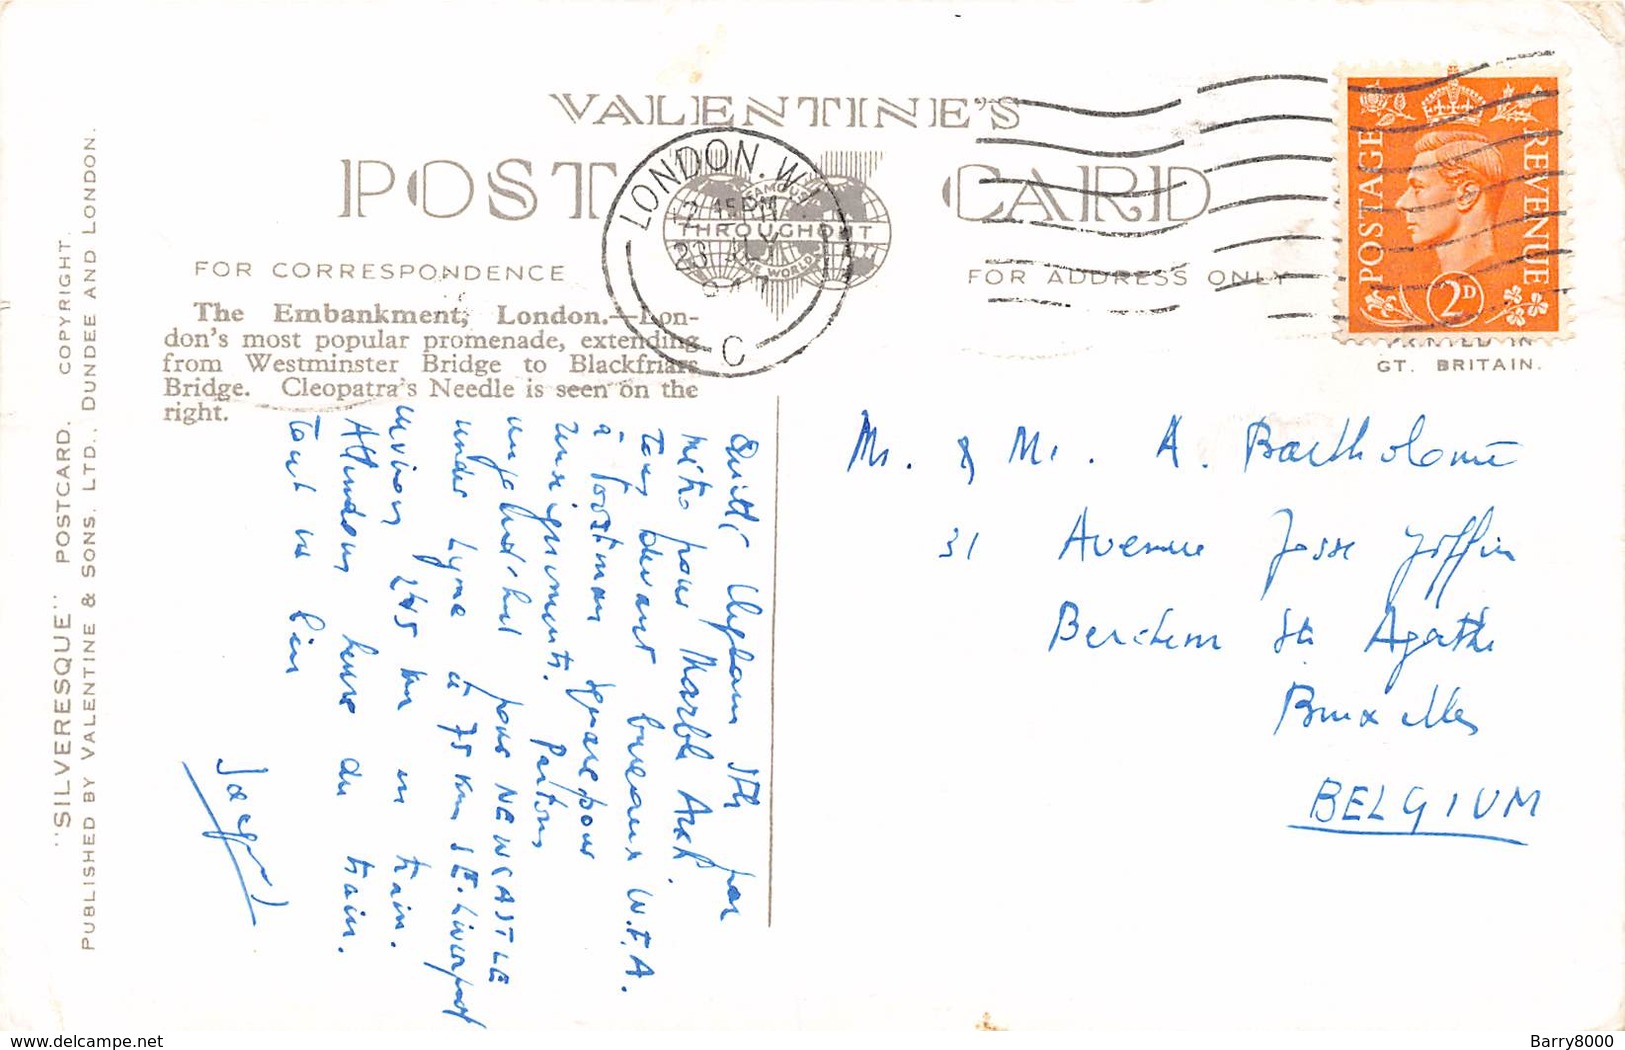 VALENTINE'S
POST CARD
FAMOUS
THROUGHOUT
THE WORLD
LONDON. W.1
12 45 PM
23 JLY
C
FOR CORRESPONDENCE
FOR ADDRESS ONLY
POSTAGE
REVENUE
2D
PRINTED IN
GT. BRITAIN.
The Embankment, London.—Lon-
don's most popular promenade, extending
from Westminster Bridge to Blackfriars
Bridge. Cleopatra's Needle is seen on the
right.
"SILVERESQUE" POSTCARD. COPYRIGHT.
PUBLISHED BY VALENTINE & SONS, LTD., DUNDEE AND LONDON.
Quitté Clapham Sth par
métro pour Marble Arch.
Taxi devant bureaux W.F.A.
à Portman square pour
renseignements. Partons
pour NEWCASTLE
under Lyme à 75 km S.E. Liverpool
environ 245 km en train.
Attendons heure du train.
Tout va bien
Mr. & Mr. A. Bartholomé
31 Avenue Josse Goffin
Berchem Ste Agathe
Bruxelles
BELGIUM
delcampe.net
Barry8000